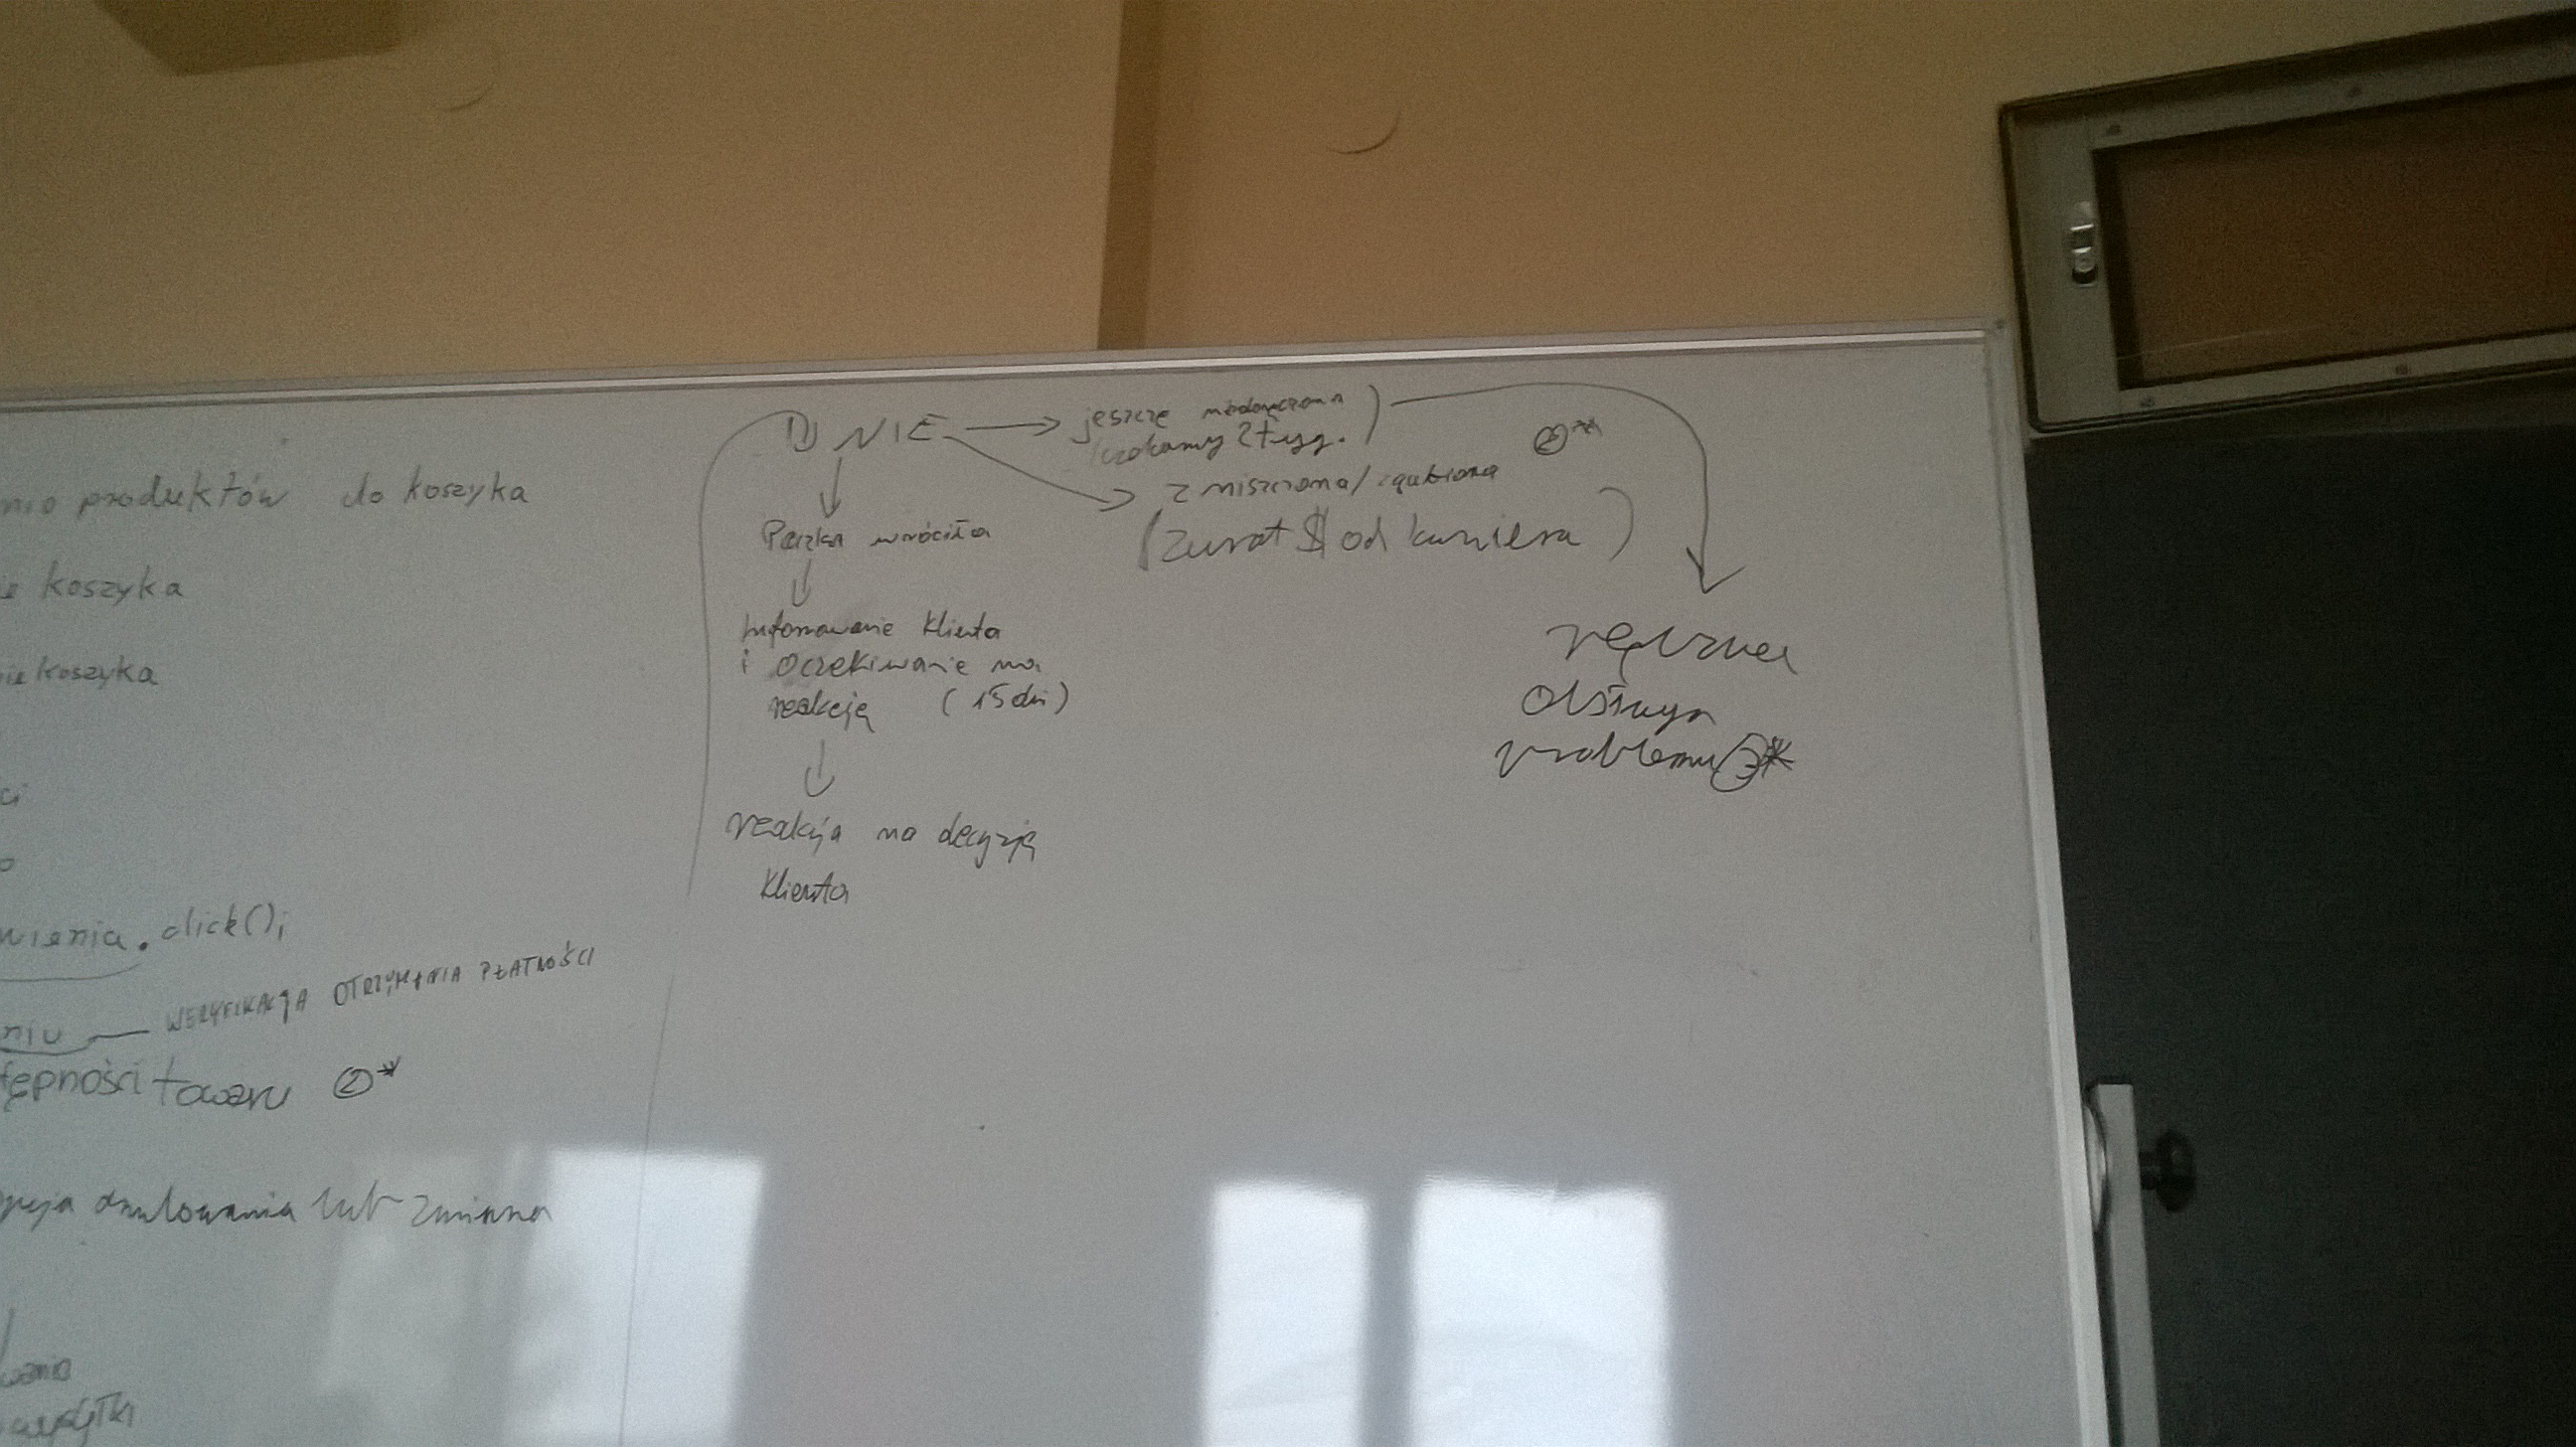 produktów do koszyka
koszyka
koszyka
click();
WERYFIKACJA OTRZYMANIA PŁATNOŚCI
niu
towaru ②*
anulowania lub zmiana
wania
① NIE
jeszcze niedoręczona
czekamy 2 tyg.
②*
zniszczona/zgubiona
(zwrot $ od kuriera)
Paczka wróciła
Informowanie klienta
i oczekiwanie na
reakcję (15 dni)
reakcja na decyzję
klienta
ręczna
obsługa
problemu ③*